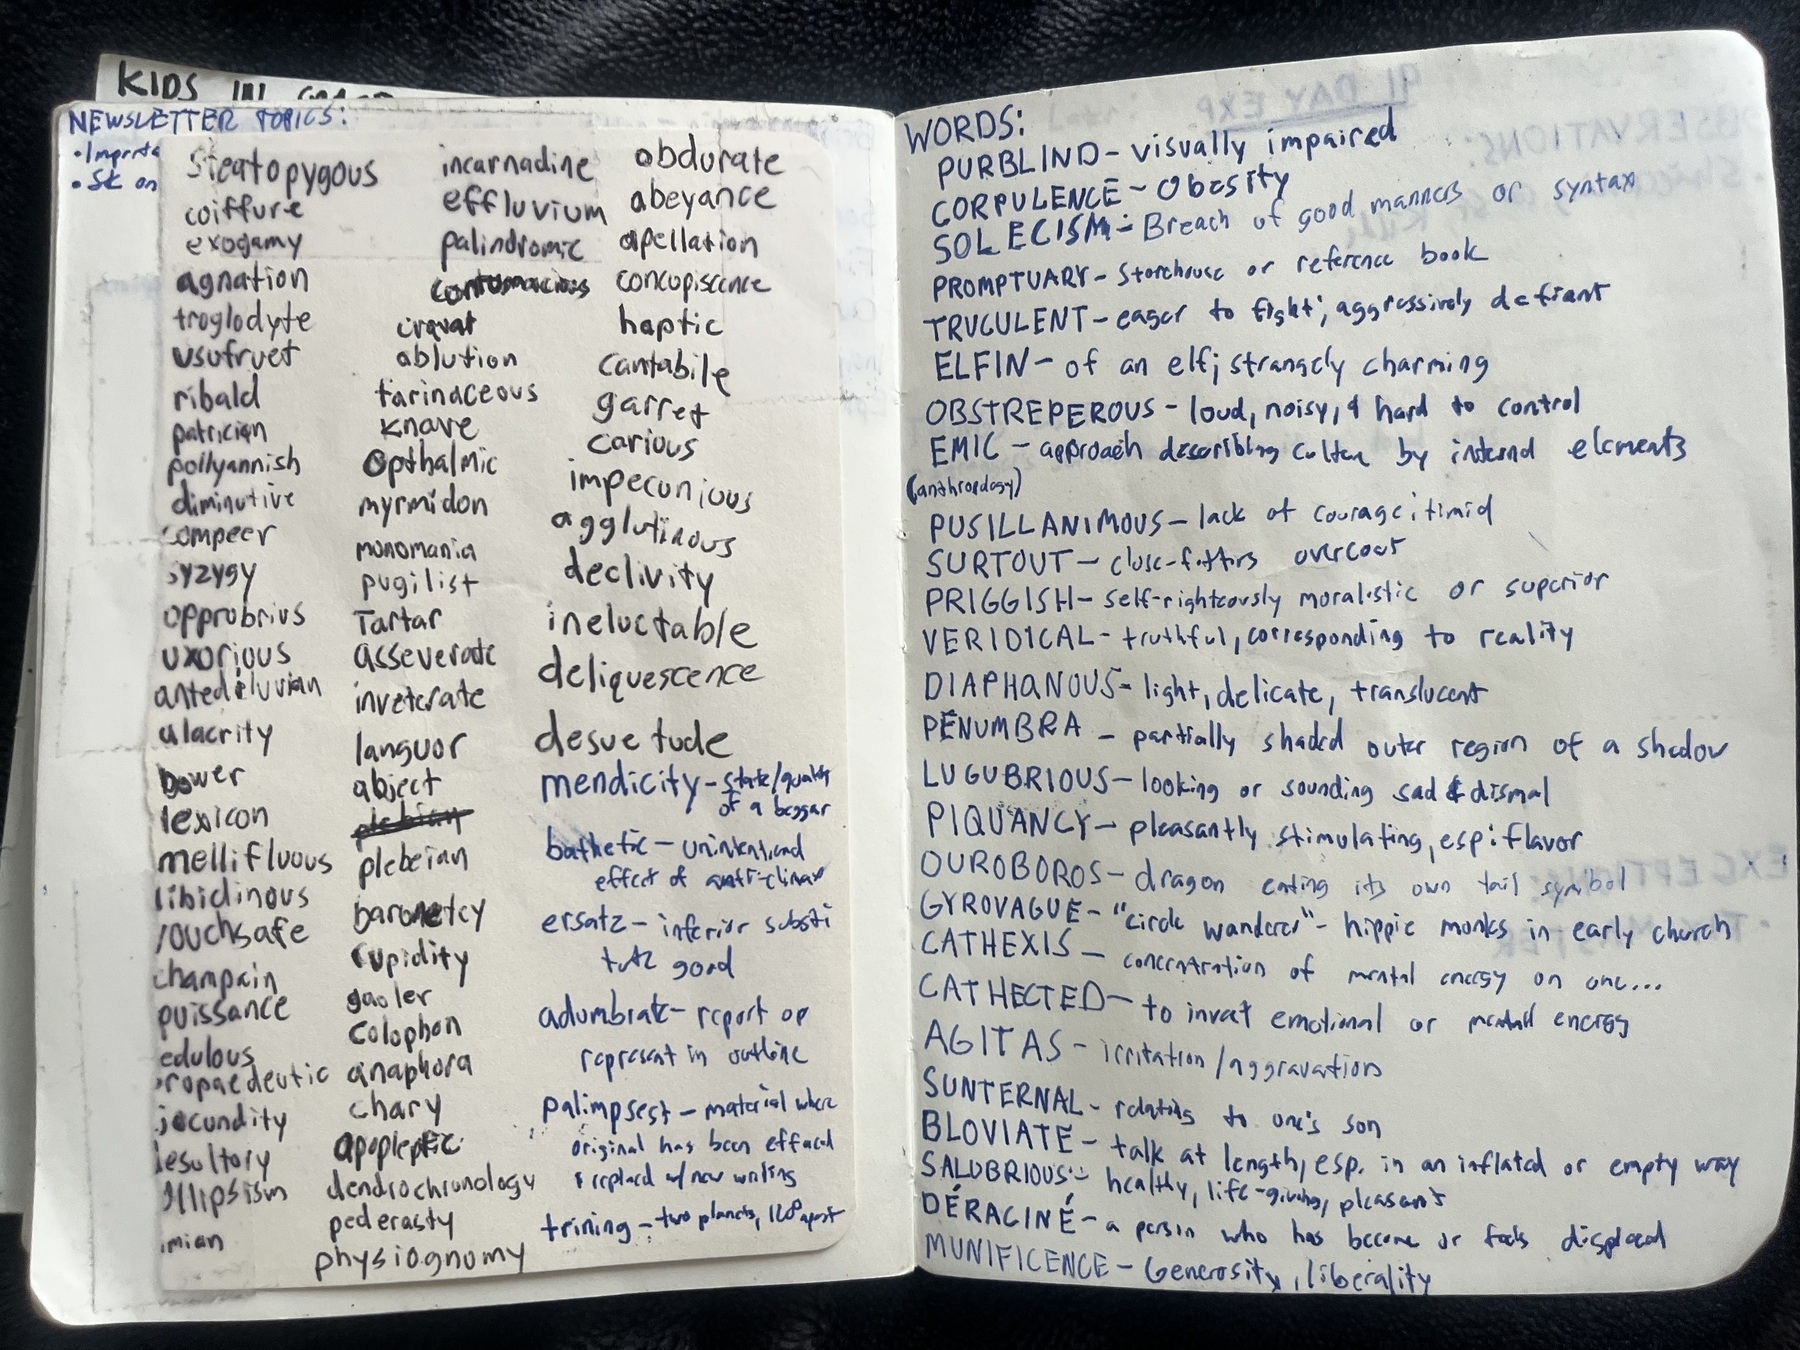 KIDS IN
NEWSLETTER TOPICS:
• SK on
steatopygous
coiffure
exogamy
agnation
troglodyte
usufruct
ribald
patrician
pollyannish
diminutive
compeer
syzygy
opprobrius
uxorious
antediluvian
alacrity
bower
lexicon
mellifluous
libidinous
vouchsafe
champain
puissance
edulous
ropaedeutic
jocundity
esultory
ollipsism
imian
incarnadine
effluvium
palindromic
contumacious
cravat
ablution
farinaceous
knave
opthalmic
myrmidon
monomania
pugilist
Tartar
asseverate
inveterate
languor
abject
plebian
plebeian
baronetcy
cupidity
gaoler
colophon
anaphora
chary
apoplectic
dendrochronology
pederasty
physiognomy
obdurate
abeyance
apellation
concupiscence
haptic
cantabile
garret
carious
impecunious
agglutinous
declivity
ineluctable
deliquescence
desuetude
mendicity - state/quality
of a beggar
bathetic - unintentional
effect of anti-climax
ersatz - inferior substi
tute good
adumbrate - report or
represent in outline
palimpsest - material where
original has been effaced
& replaced w/ new writing
trining - two planets, 120° apart
WORDS:
PURBLIND - visually impaired
CORPULENCE - Obesity
SOLECISM - Breach of good manners or syntax
PROMPTUARY - Storehouse or reference book
TRUCULENT - eager to fight; aggressively defiant
ELFIN - of an elf; strangely charming
OBSTREPEROUS - loud, noisy, & hard to control
EMIC - approach describing culture by internal elements
(anthropology)
PUSILLANIMOUS - lack of courage; timid
SURTOUT - close-fitting overcoat
PRIGGISH - self-righteously moralistic or superior
VERIDICAL - truthful, corresponding to reality
DIAPHANOUS - light, delicate, translucent
PENUMBRA - partially shaded outer region of a shadow
LUGUBRIOUS - looking or sounding sad & dismal
PIQUANCY - pleasantly stimulating, esp: flavor
OUROBOROS - dragon eating its own tail symbol
GYROVAGUE - "circle wanderer" - hippie monks in early church
CATHEXIS - concentration of mental energy on one...
CATHECTED - to invest emotional or mental energy
AGITAS - irritation/aggravation
SUNTERNAL - relating to one's son
BLOVIATE - talk at length, esp. in an inflated or empty way
SALUBRIOUS - healthy, life-giving, pleasant
DÉRACINÉ - a person who has become or feels displaced
MUNIFICENCE - Generosity, liberality